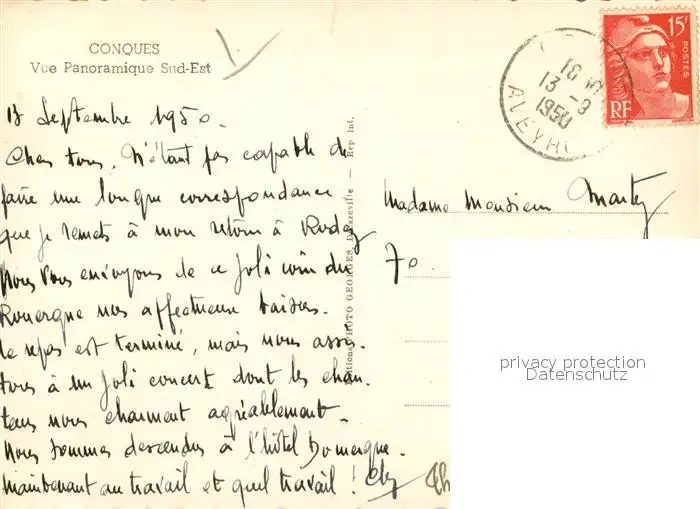 CONQUES
Vue Panoramique Sud-Est
13 Septembre 1950.
Chers tous, N'étant pas capable de
faire une longue correspondance
que je remets à mon retour à Rodez
Nous vous envoyons de ce joli coin du
Rouergue nos affectueux baisers.
Le repas est terminé, mais nous assis-
tons à un joli concert dont les chan-
teurs nous charment agréablement.
Nous sommes descendus à l'hôtel Domergue.
maintenant au travail et quel travail !
PHOTO GEORGES, Decazeville — Rep Int.
15F
POSTES
RF
18
13 - 9
1950
AVEYRON
Madame Monsieur
70
privacy protection
Datenschutz